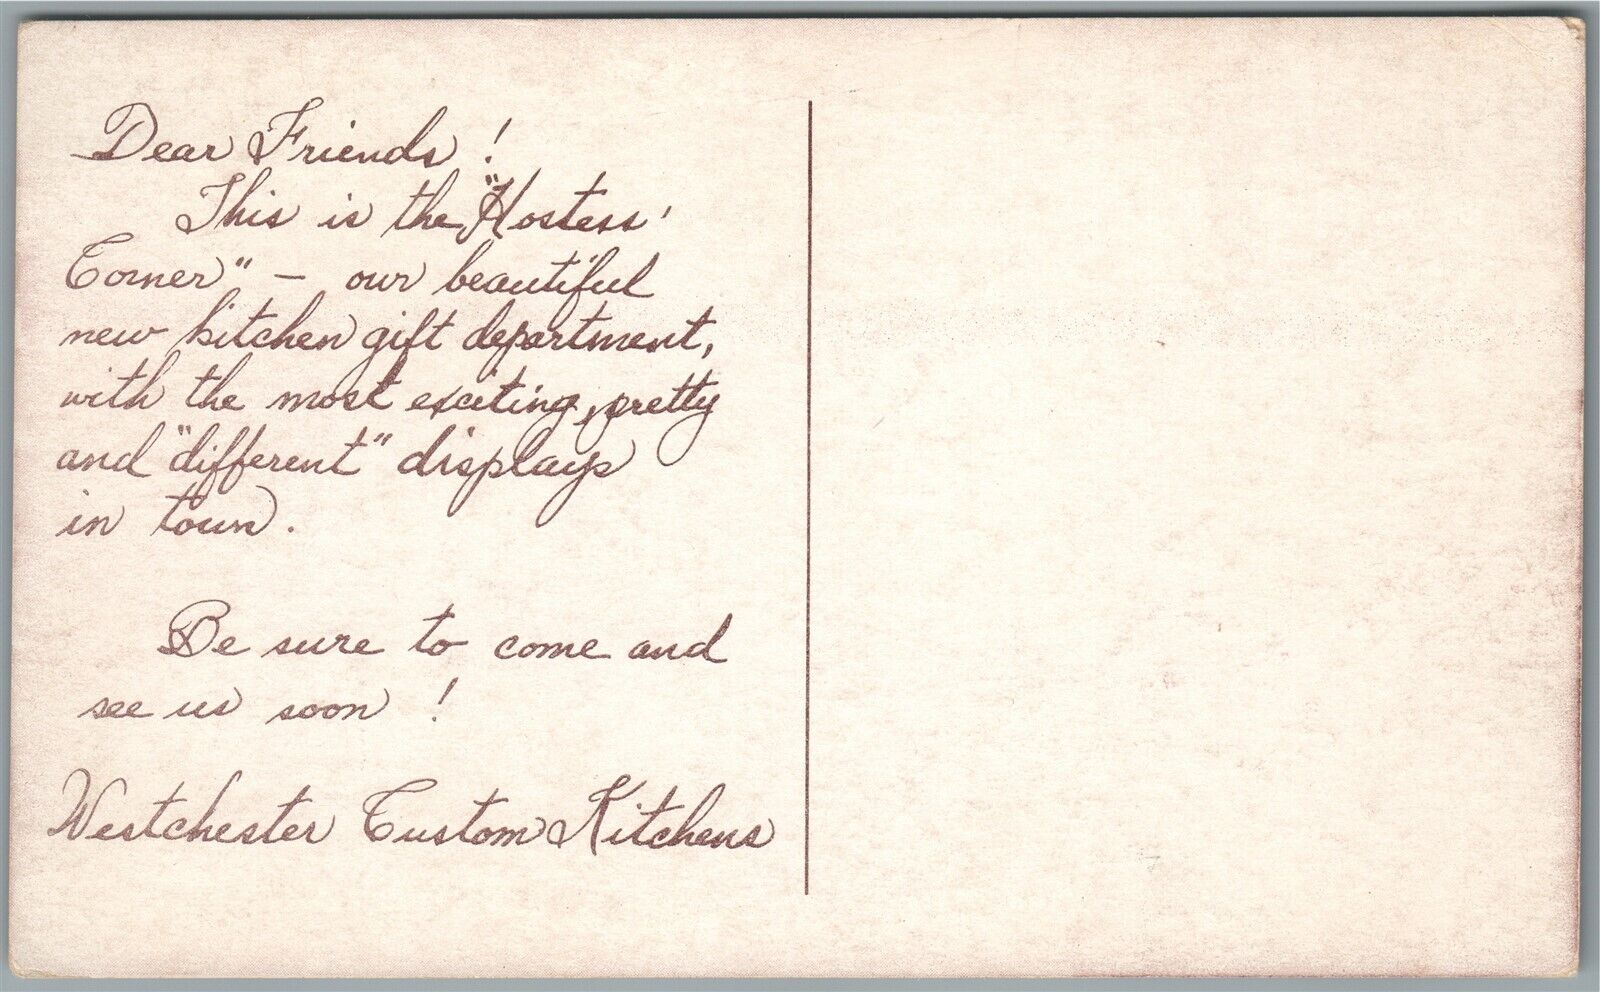 Dear Friends !
This is the "Hostess'
Corner" – our beautiful
new kitchen gift department,
with the most exciting, pretty
and "different" displays
in town.
Be sure to come and
see us soon !
Westchester Custom Kitchens